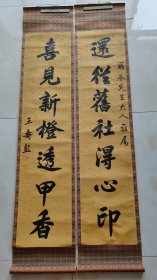 還從舊社得心印
喜見新橙透甲香
王壽彭